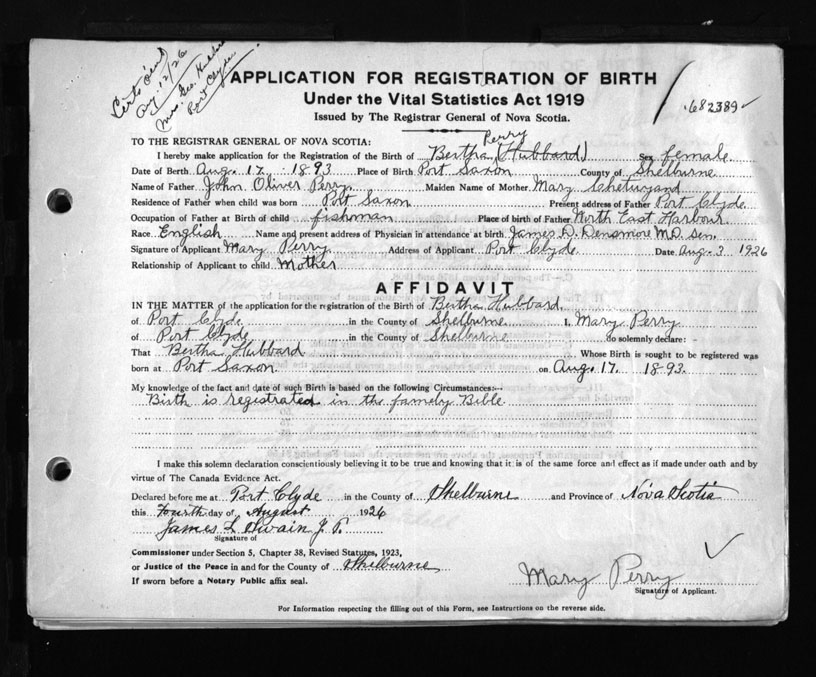 Certo
Aug. 12/26
Mrs. Geo. Hubbard
Port Clyde
APPLICATION FOR REGISTRATION OF BIRTH
682389
Under the Vital Statistics Act 1919
Issued by The Registrar General of Nova Scotia.
TO THE REGISTRAR GENERAL OF NOVA SCOTIA:
Perry
I hereby make application for the Registration of the Birth of Bertha (Hubbard) Sex female
Date of Birth Aug. 17. 1893 Place of Birth Port Saxon County of Shelburne
Name of Father John Oliver Perry Maiden Name of Mother Mary Chetwynd
Residence of Father when child was born Port Saxon Present address of Father Port Clyde
Occupation of Father at Birth of child fishoman Place of birth of Father North East Harbour
Race English Name and present address of Physician in attendance at birth James D. Densmore M.D. Sen.
Signature of Applicant Mary Perry Address of Applicant Port Clyde Date Aug. 3 1926
Relationship of Applicant to child Mother
AFFIDAVIT
IN THE MATTER of the application for the registration of the Birth of Bertha Hubbard.
of Port Clyde in the County of Shelburne I, Mary Perry
of Port Clyde in the County of Shelburne do solemnly declare: -
That Bertha Hubbard Whose Birth is sought to be registered was
born at Port Saxon on Aug. 17. 1893.
My knowledge of the fact and date of such Birth is based on the following Circumstances:--
Birth is registrated in the famely Bible
I make this solemn declaration conscientiously believing it to be true and knowing that it is of the same force and effect as if made under oath and by
virtue of The Canada Evidence Act.
Declared before me at Port Clyde in the County of Shelburne and Province of Nova Scotia
this Fourth day of August 1926
James L Swain J. P.
Signature of
Commissioner under Section 5, Chapter 38, Revised Statutes, 1923,
or Justice of the Peace in and for the County of Shelburne
If sworn before a Notary Public affix seal.
Mary Perry
Signature of Applicant.
For Information respecting the filling out of this Form, see Instructions on the reverse side.